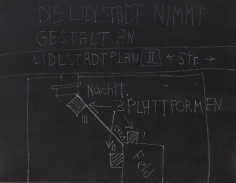 DIE LIDLSTADT NIMMT
GESTALT AN
LIDLSTADTPLAN II ← Str. →
Nachtl.
2 PLATTFORMEN
III
I
II